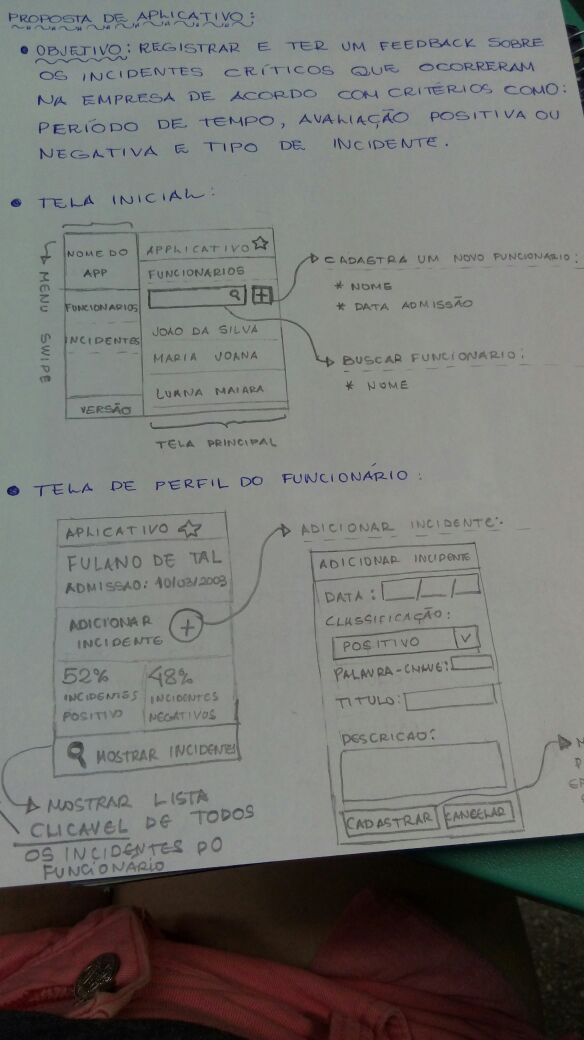 PROPOSTA DE APLICATIVO:
• OBJETIVO: REGISTRAR E TER UM FEEDBACK SOBRE
OS INCIDENTES CRÍTICOS QUE OCORRERAM
NA EMPRESA DE ACORDO COM CRITÉRIOS COMO:
PERÍODO DE TEMPO, AVALIAÇÃO POSITIVA OU
NEGATIVA E TIPO DE INCIDENTE.
• TELA INICIAL:
MENU SWIPE
NOME DO
APP
FUNCIONARIOS
INCIDENTES
VERSÃO
APPLICATIVO
FUNCIONARIOS
+
JOAO DA SILVA
MARIA JOANA
LUANA MAIARA
TELA PRINCIPAL
CADASTRA UM NOVO FUNCIONARIO:
* NOME
* DATA ADMISSÃO
BUSCAR FUNCIONARIO:
* NOME
• TELA DE PERFIL DO FUNCIONÁRIO:
APLICATIVO
FULANO DE TAL
ADMISSAO: 10/03/2003
ADICIONAR
INCIDENTE +
52%
INCIDENTES
POSITIVO
48%
INCIDENTES
NEGATIVOS
MOSTRAR INCIDENTES
MOSTRAR LISTA
CLICAVEL DE TODOS
OS INCIDENTES DO
FUNCIONARIO
ADICIONAR INCIDENTE:
ADICIONAR INCIDENTE
DATA: __/__/__
CLASSIFICAÇÃO:
POSITIVO V
PALAVRA-CHAVE:
TITULO:
DESCRICAO:
CADASTRAR CANCELAR